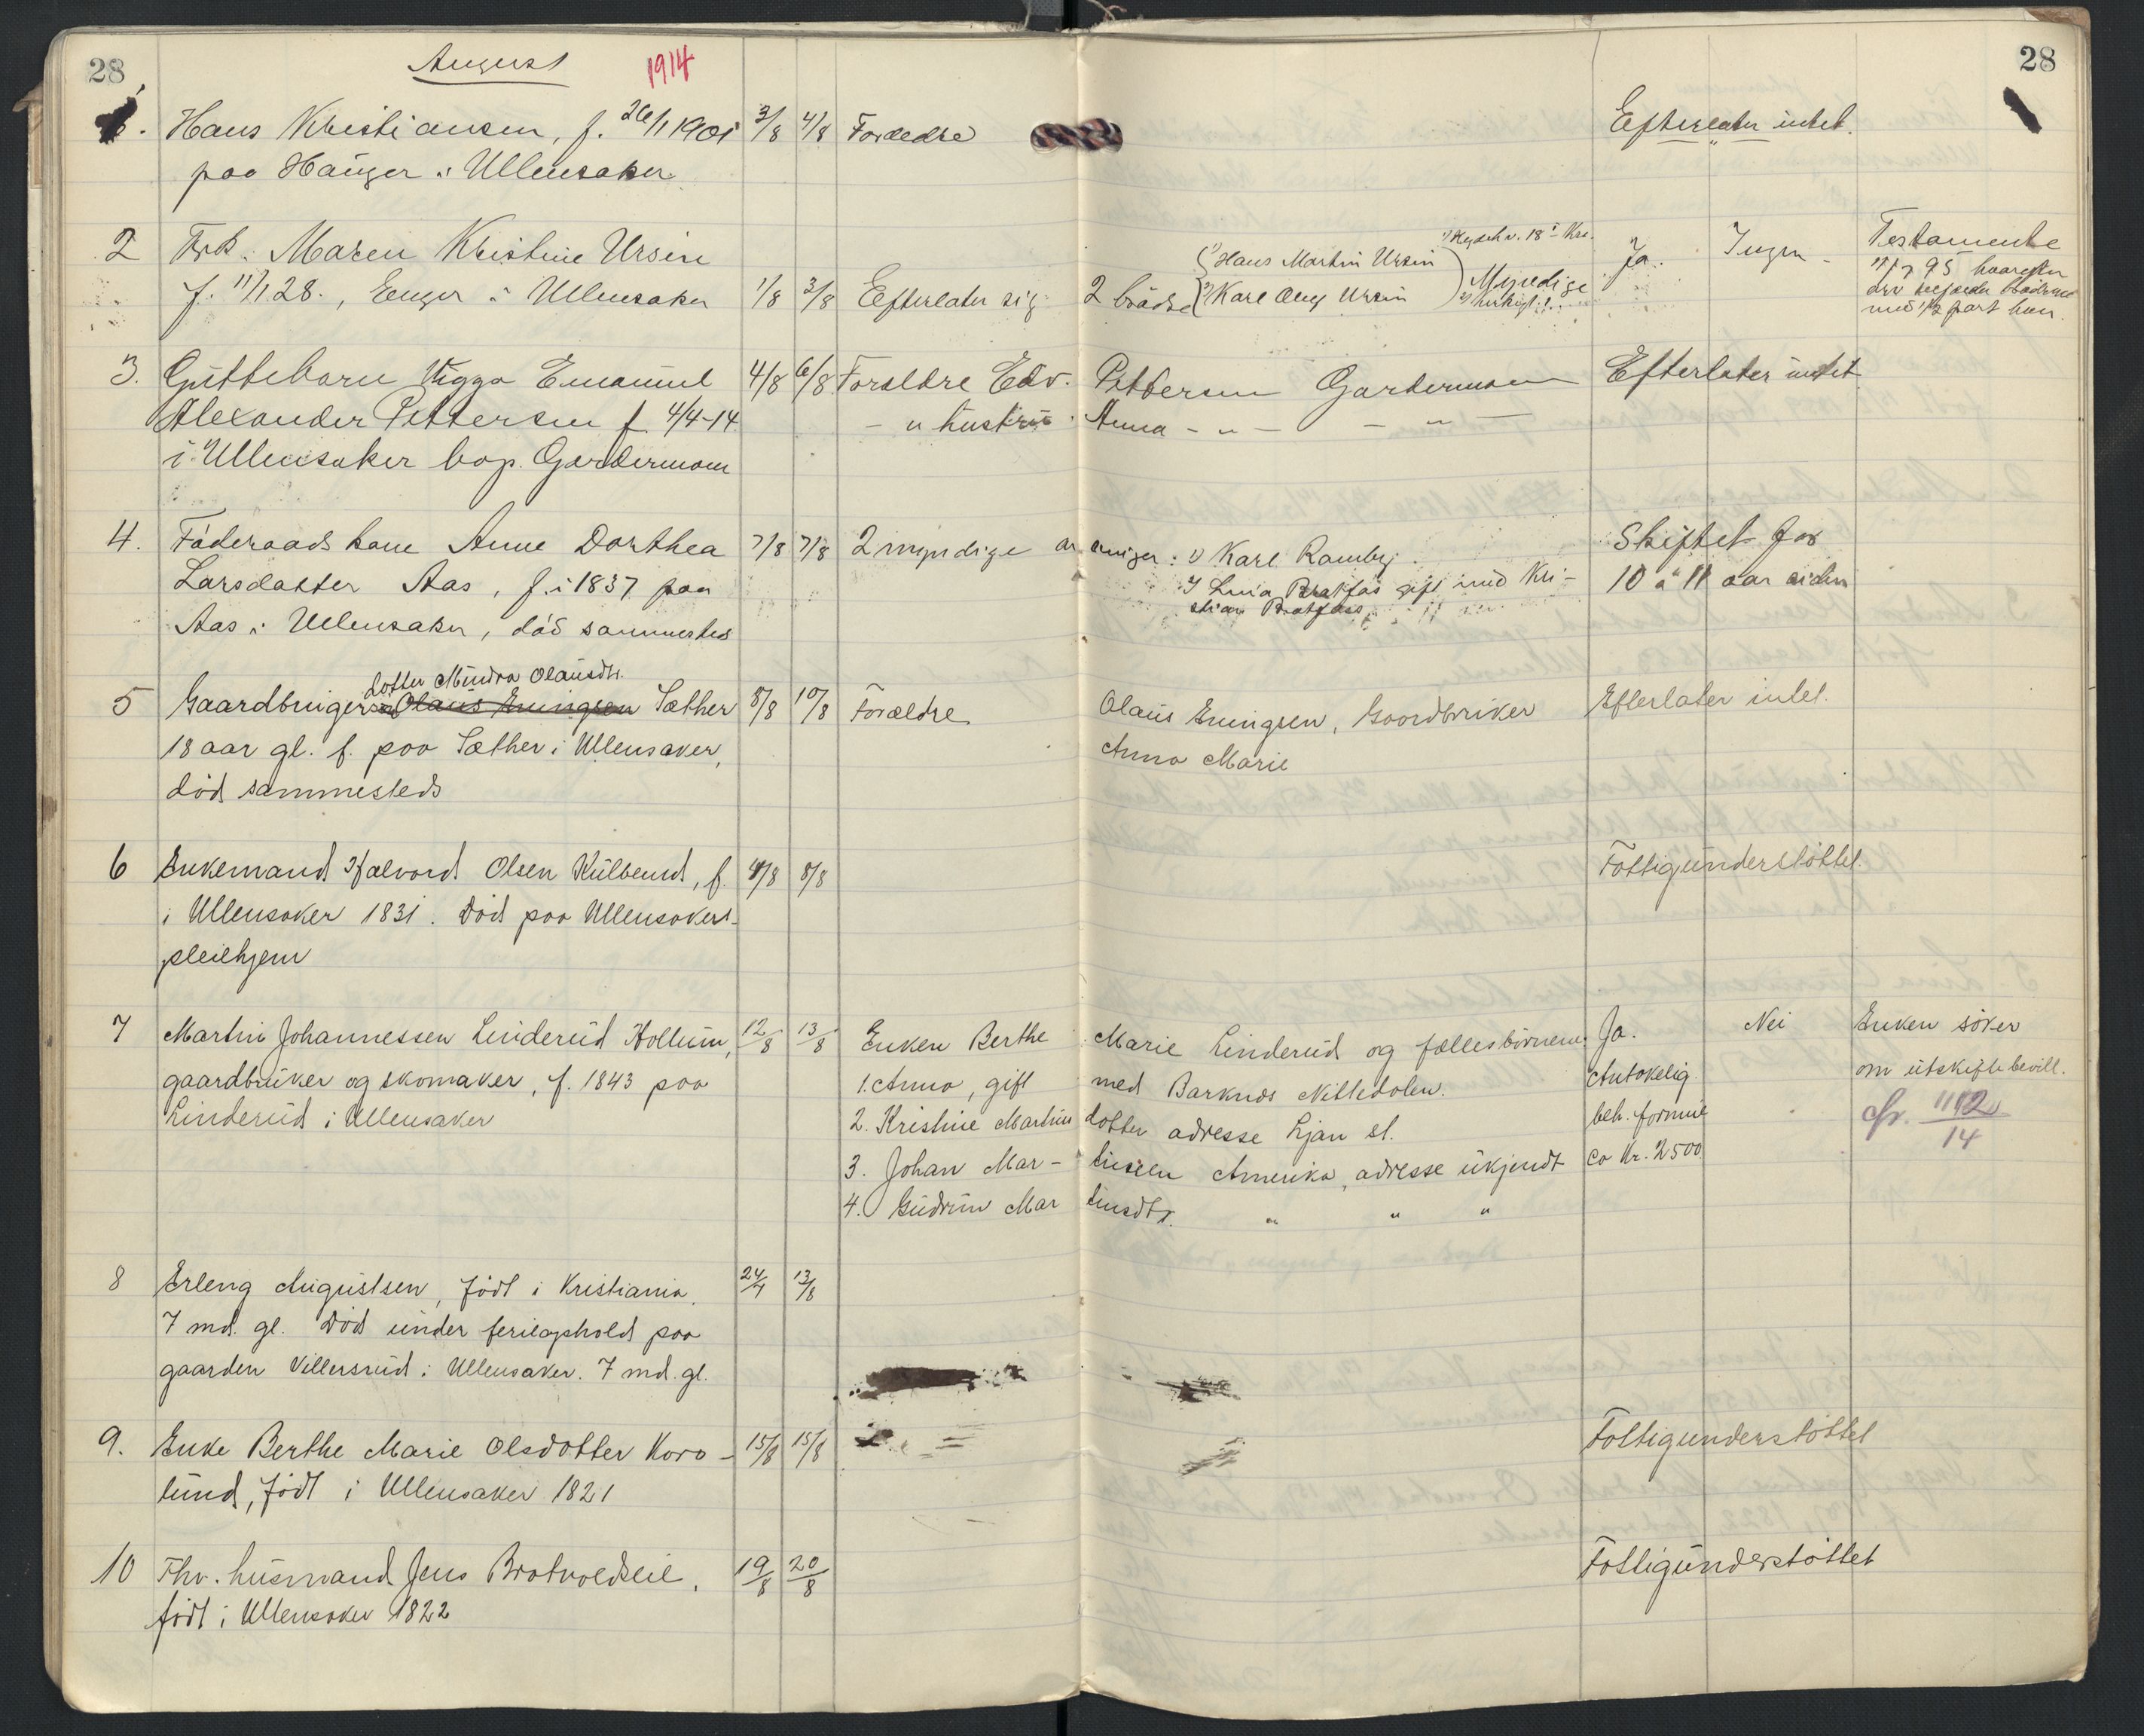 28 August 1914 28
1. Hans Kristiansen, f. 26/1 1901 3/8 4/8 Forældre Efterlater intet.
paa Hauger i Ullensaker
2 Frk. Maren Kristine Ursin
f. 11/1 28., Enger i Ullensaker 1/8 3/8 Efterlater sig 2 brødre { 1) Hans Martin Ursin 2) Karl Ursin } Myndige Ja. Ingen - Testamente
part hver.
3. Guttebarn Viggo Emanuel 4/8 6/8 Forældre Edv. Pettersen Gardermoen Efterlater intet
Alexander Pettersen f. 4/4-14 - " hustru Anna - " - - " -
i Ullensaker bop. Gardermoen
4. Føderaadskone Anne Dorthea 7/8 7/8 2 myndige arvinger: 1) Karl Ramby. Skiftet for
Larsdatter Aas, f. i 1837 paa 2) Lina Bratfos gift med Kri- 10 a 11 aar siden
stian Bratfoss
Aas i Ullensaker, død sammesteds
datter Mindra Olausdtr.
5 Gaardbruger Olaus Eningsen Sæther 8/8 10/8 Forældre Olaus Eningsen, Gaardbruker Efterlater intet.
18 aar gl. f. paa Sæther i Ullensaker, Anna Marie
död sammesteds
6 Enkemand Halvord Olsen Kulbeund, f. 8/8 Fattigunderstöttet.
i Ullensaker 1831. Död paa Ullensakers
pleiehjem
7 Martin Johannessen Linderud Hollum, 12/8 13/8 Enken Berthe Marie Linderud og fællesbörnene Ja. Nei Enken söker
gaardbruker og skomaker, f. 1843 paa 1. Anna, gift med Barknes Nittedalen. Antakelig om utskiftebevill.
Linderud i Ullensaker 2. Kristine Martinsdatter adresse Ljan st. beh. formue cfr. 1112/14
3. Johan Martinsen Amerika, adresse ukjendt ca Kr. 2500
4. Gudrun Martinsdtr. " " "
8 Erling Augustsen, födt i Kristiania, 24/4 13/8
7 md. gl. Död under ferieophold paa
gaarden Villersrud i Ullensaker. 7 md. gl.
9. Enke Berthe Marie Olsdatter Koro- 15/8 15/8 Fattigunderstöttet
lund, födt i Ullensaker 1821
10 Fhv. husmand Jens Bratvoldseie, 19/8 20/8 Fattigunderstöttet
födt i Ullensaker 1822